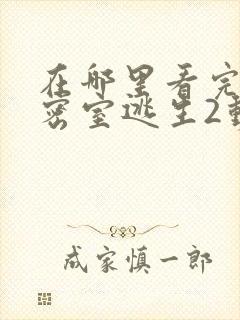 在哪里看完
密室逃生2
成家慎一郎